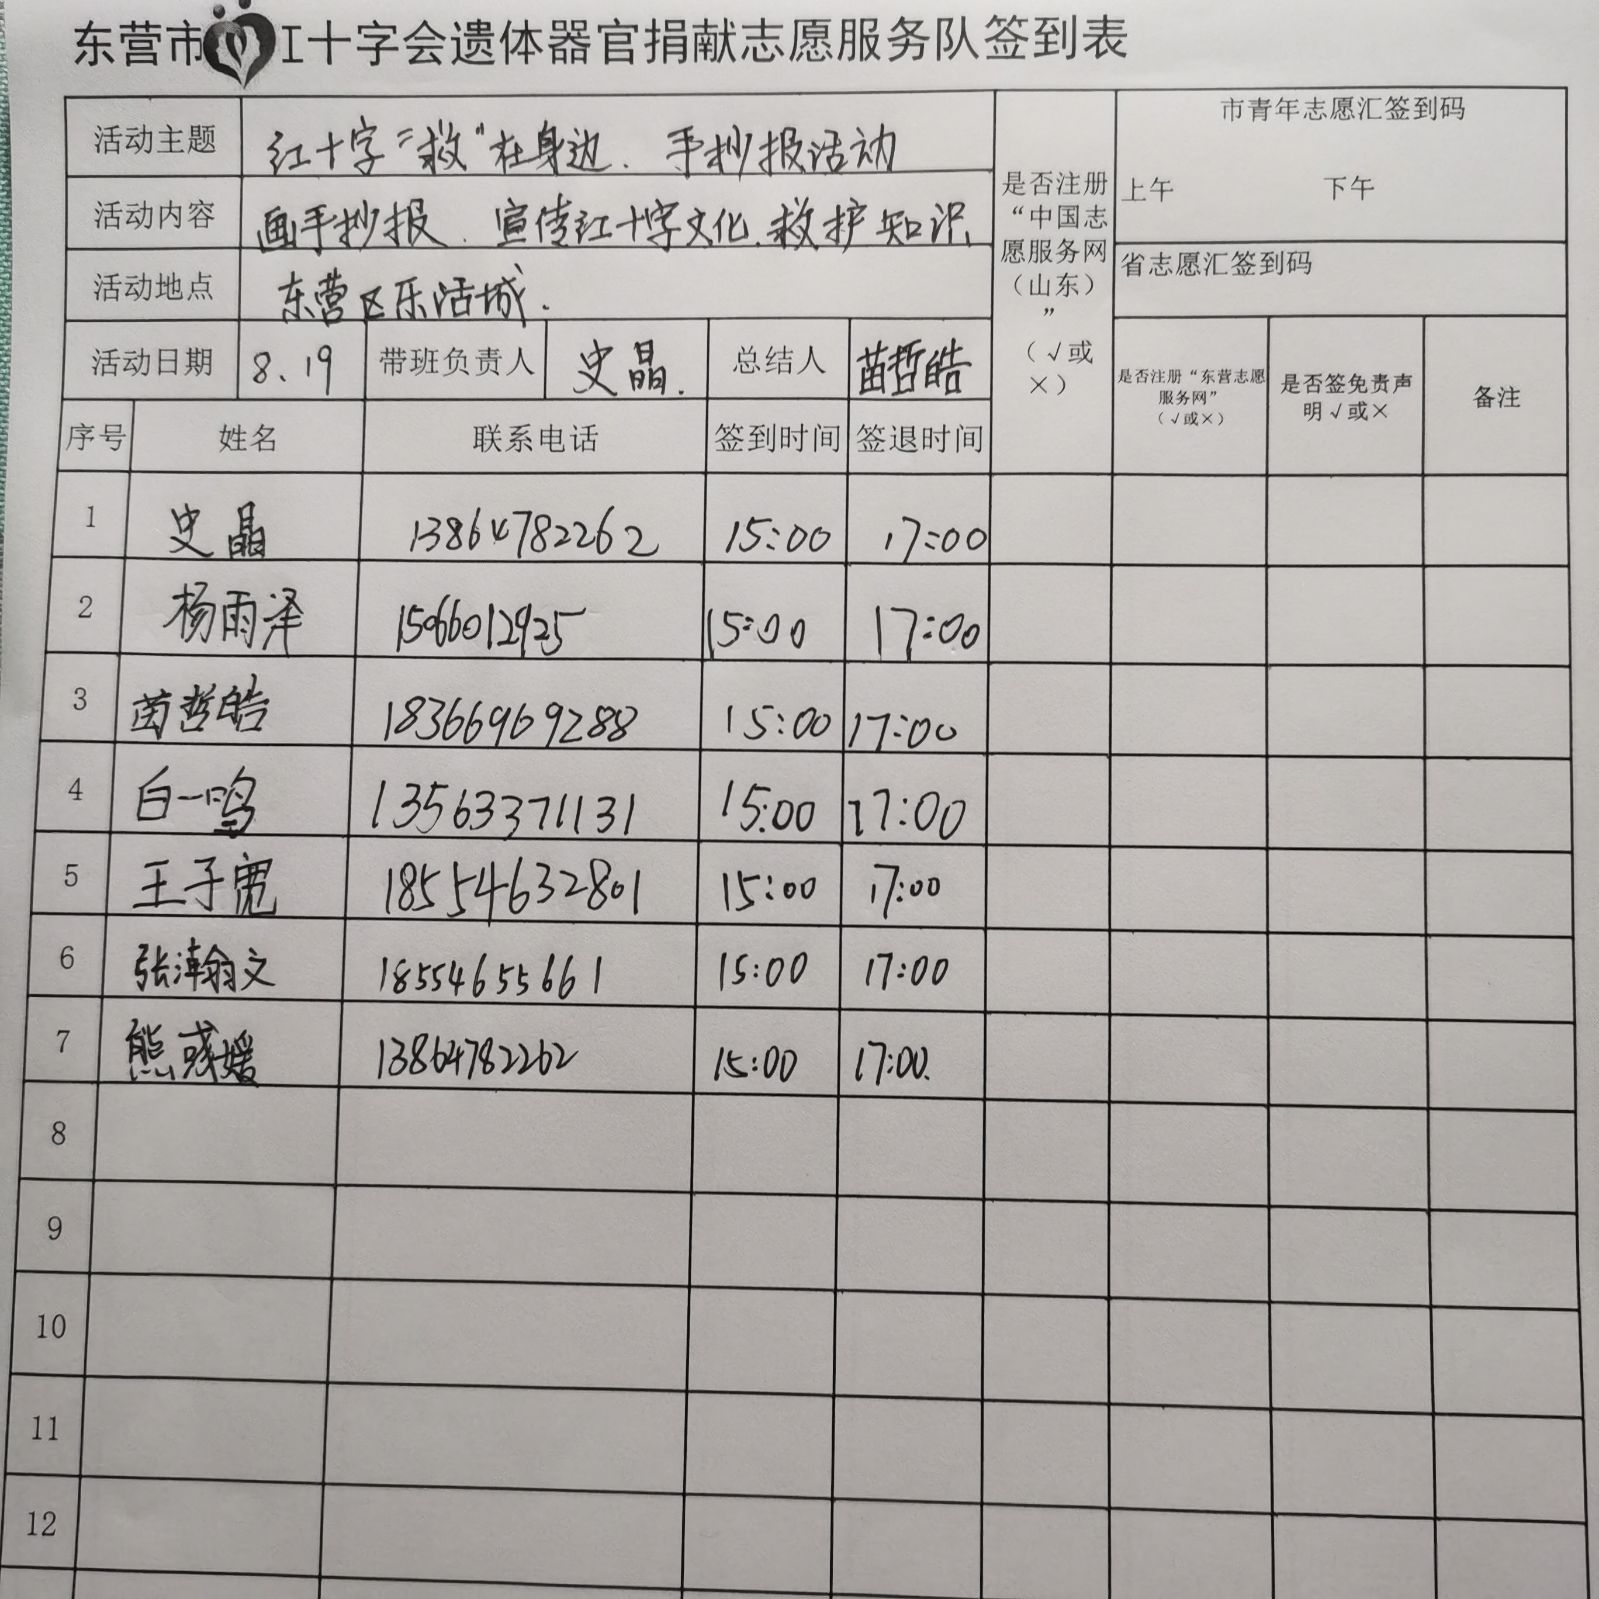 东营市工十字会遗体器官捐献志愿服务队签到表
活动主题 红十字“救”在身边、手抄报活动
活动内容 画手抄报、宣传红十字文化、救护知识
活动地点 东营区乐活城.
活动日期 8、19 带班负责人 史晶. 总结人 苗哲皓
是否注册
“中国志
愿服务网
（山东）
”
（√或
×）
市青年志愿汇签到码
上午 下午
省志愿汇签到码
是否注册“东营志愿
服务网”
（√或×）
是否签免责声
明√或×
备注
序号 姓名 联系电话 签到时间 签退时间
1 史晶 13864782262 15:00 17:00
2 杨雨泽 15066012925 15:00 17:00
3 苗哲皓 18366969288 15:00 17:00
4 白一鸣 13563371131 15:00 17:00
5 王子宽 18554632801 15:00 17:00
6 张瀚文 18554655661 15:00 17:00
7 熊媛 13864782262 15:00 17:00.
8
9
10
11
12